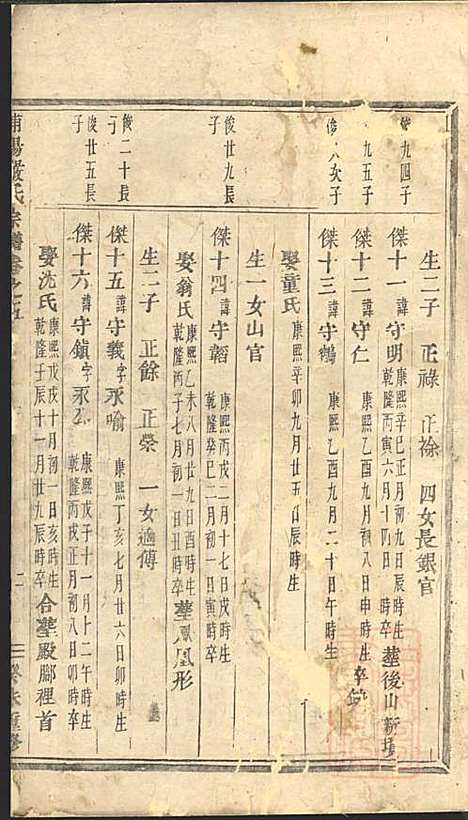 生二子 正祿 正祿 四女長銀官
俊九四子
傑十一 諱守明 康熙辛巳正月初九日辰時生 乾隆丙寅六月十四日 時卒 葬後山新塘
俊九五子
傑十二 諱守仁 康熙乙酉九月初八日申時生 卒
俊八次子
傑十三 諱守鶴 康熙乙酉九月二十日午時生
娶童氏 康熙辛卯九月廿五日辰時生
生一女山官
俊廿九長子
傑十四 諱守韜 康熙丙戌二月十七日戌時生 乾隆癸巳二月初一日寅時卒
娶翁氏 康熙乙未八月廿九日酉時生 乾隆丙子七月初一日丑時卒 葬鳳凰形
生二子 正餘 正榮 一女適傅
俊二十長子
傑十五 諱守義 字永喻 康熙丁亥七月廿六日卯時生
俊廿五長子
傑十六 諱守鎮 字永 康熙戊子十一月十二午時生 乾隆丙戌正月初八日卯時卒
娶沈氏 康熙戊戌十月初一日亥時生 乾隆壬辰十一月廿九辰時卒 合葬殿腳裡首
陽嚴氏宗譜卷之五
二